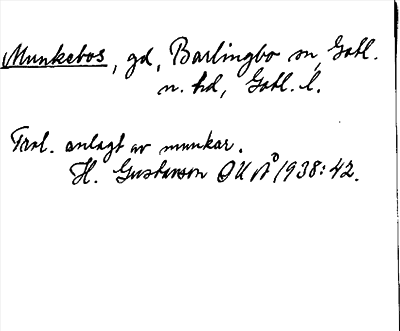 Munkebos, gd, Barlingbo sn, Gotl.
n. hd, Gotl. l.
Trol. anlagt av munkar.
H. Gustavson OUÅ 1938:42.